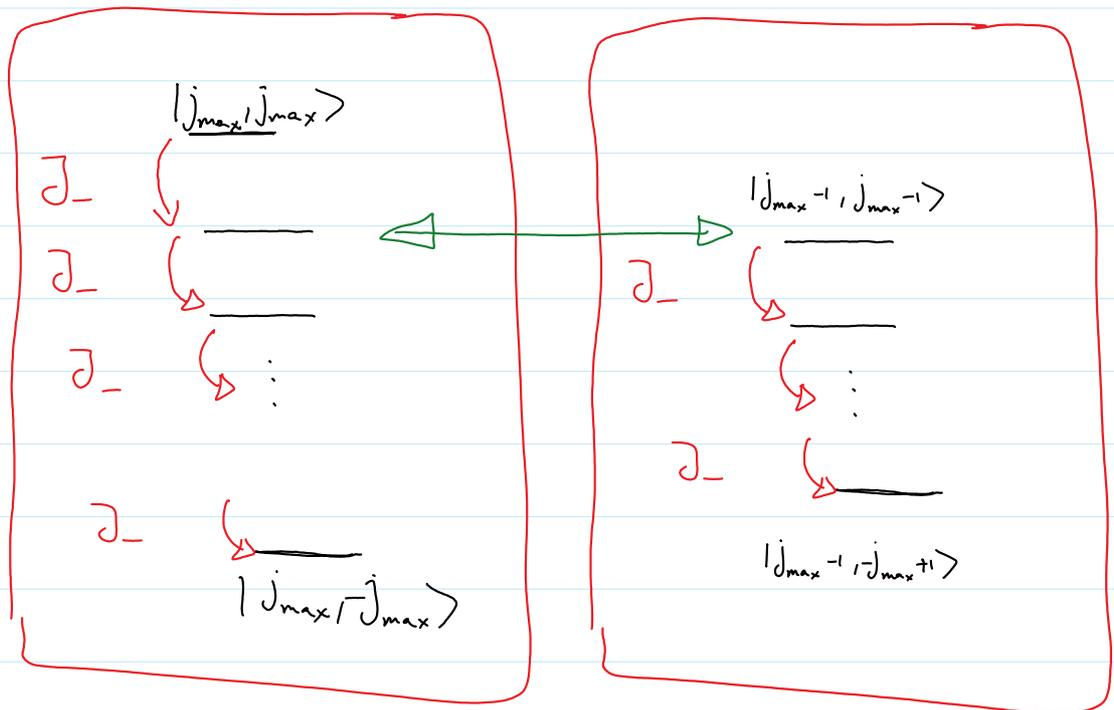 |j_max, j_max>
J_
J_
J_
J_
|j_max, -j_max>
|j_max -1, j_max -1>
J_
J_
|j_max -1, -j_max +1>